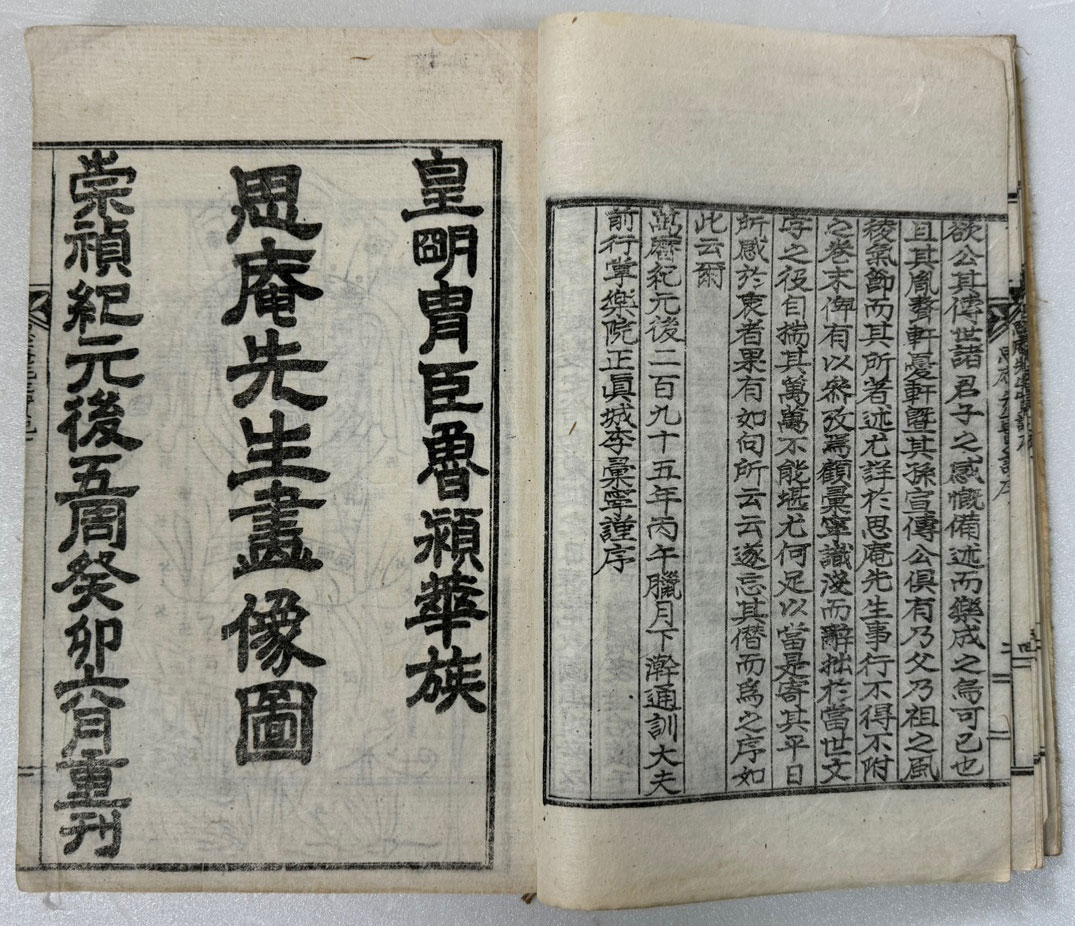 欲公其傳世諸君子之感慨備述而樂成之烏可已也
且其胤聱軒憂軒曁其孫宣傳公俱有乃父乃祖之風
稜氣節而其所著述尤詳於思庵先生事行不得不附
之卷末俾有以參攷焉顧彙寧識淺而辭拙於當世文
字之役自揣其萬萬不能堪尤何足以當是寄其平日
所感於衷者果有如向所云云遂忘其僭而爲之序如
此云爾
萬曆紀元後二百九十五年丙午臘月下澣通訓大夫
前行掌樂院正眞城李彙寧謹序
皇明胄臣魯潁華族
思庵先生畫像圖
崇禎紀元後五周癸卯六月重刊